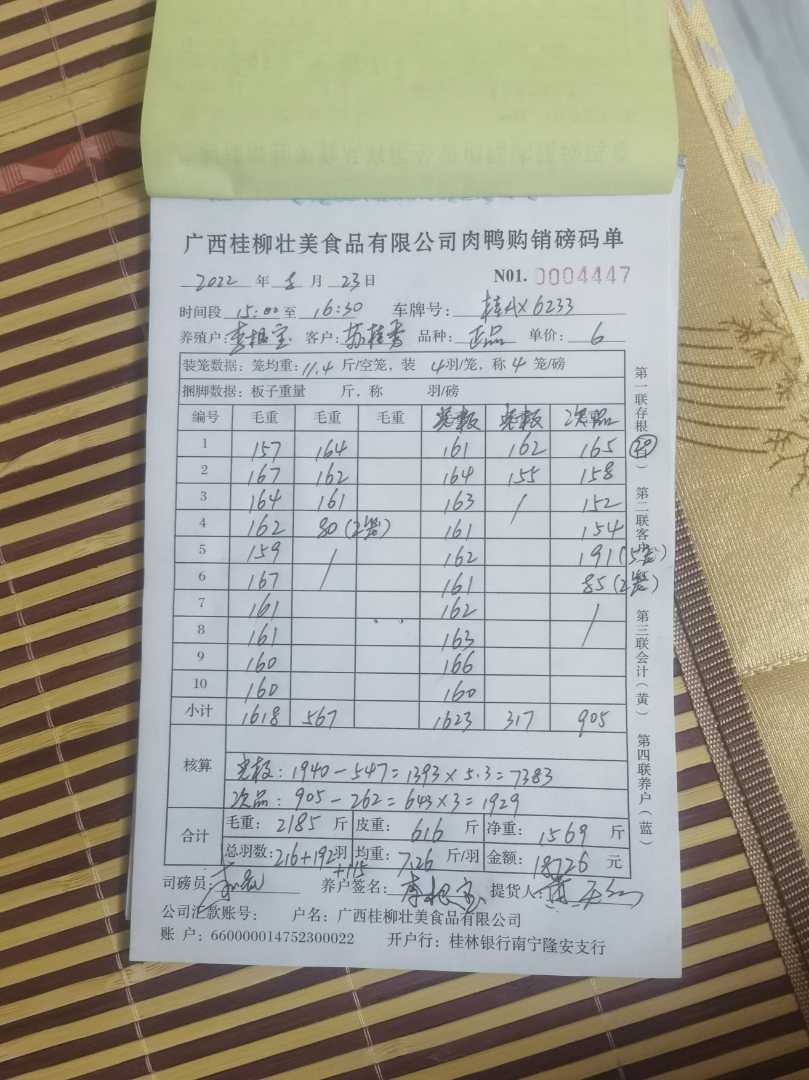 广西桂柳壮美食品有限公司肉鸭购销磅码单
2022 年 8 月 23 日 N01. 0004447
时间段 15:00 至 16:30 车牌号: 桂AX6233
养殖户: 李祖宝 客户: 苏桂秀 品种: 正品 单价: 6
装笼数据: 笼均重: 11.4 斤/空笼, 装 4 羽/笼, 称 4 笼/磅
捆脚数据: 板子重量 斤, 称 羽/磅
编号 毛重 毛重 毛重 光极 光极 次品
1 157 164 161 162 165
2 167 162 164 155 158
3 164 161 163 / 152
4 162 80(2笼) 161 154
5 159 / 162 191(5笼)
6 167 / 161 85(2笼)
7 161 162 /
8 161 163 /
9 160 166
10 160 160
小计 1618 567 1623 317 905
核算
光极: 1940-547=1393×5.3=7383
次品: 905-262=643×3=1929
合计 毛重: 2185 斤 皮重: 616 斤 净重: 1569 斤
总羽数: 216+192 羽 +115 均重: 7.26 斤/羽 金额: 18726 元
司磅员: 养户签名: 提货人:
公司汇款账号: 户名: 广西桂柳壮美食品有限公司
账 户: 660000014752300022 开户行: 桂林银行南宁隆安支行
第一联存根(白) 第二联客户(红) 第三联会计(黄) 第四联养户(蓝)